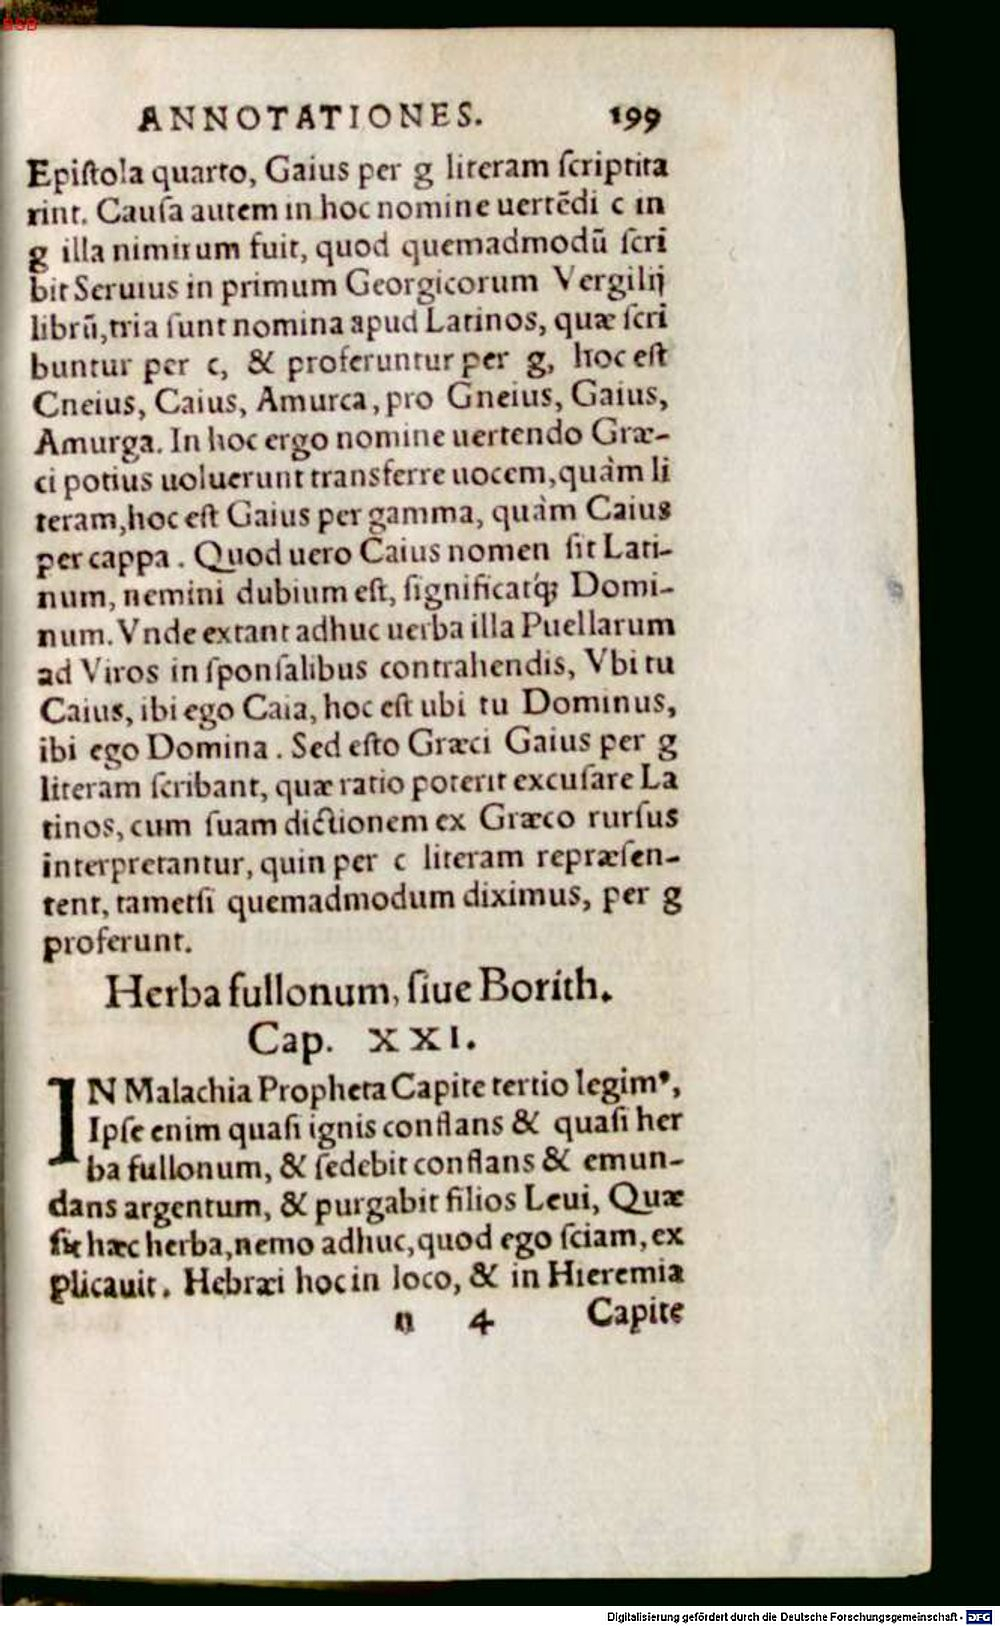 BSB
ANNOTATIONES. 199
Epiſtola quarto, Gaius per g literam ſcriptita
rint. Cauſa autem in hoc nomine uertẽdi c in
g illa nimirum fuit, quod quemadmodũ ſcri
bit Seruius in primum Georgicorum Vergilij
librũ, tria ſunt nomina apud Latinos, quæ ſcri
buntur per c, & proferuntur per g, hoc eſt
Cneius, Caius, Amurca, pro Gneius, Gaius,
Amurga. In hoc ergo nomine uertendo Græ-
ci potius uoluerunt transferre uocem, quàm li
teram, hoc eſt Gaius per gamma, quàm Caius
per cappa. Quod uero Caius nomen ſit Lati-
num, nemini dubium eſt, ſignificatq́; Domi-
num. Vnde extant adhuc uerba illa Puellarum
ad Viros in ſponſalibus contrahendis, Vbi tu
Caius, ibi ego Caia, hoc eſt ubi tu Dominus,
ibi ego Domina. Sed eſto Græci Gaius per g
literam ſcribant, quæ ratio poterit excuſare La
tinos, cum ſuam dictionem ex Græco rurſus
interpretantur, quin per c literam repræſen-
tent, tametſi quemadmodum diximus, per g
proferunt.
Herba fullonum, ſiue Borith.
Cap. XXI.
IN Malachia Propheta Capite tertio legimꝰ,
Ipſe enim quaſi ignis conflans & quaſi her
ba fullonum, & ſedebit conflans & emun-
dans argentum, & purgabit filios Leui, Quæ
ſit hæc herba, nemo adhuc, quod ego ſciam, ex
plicauit. Hebræi hoc in loco, & in Hieremia
n 4 Capite
Digitalisierung gefördert durch die Deutsche Forschungsgemeinschaft - DFG